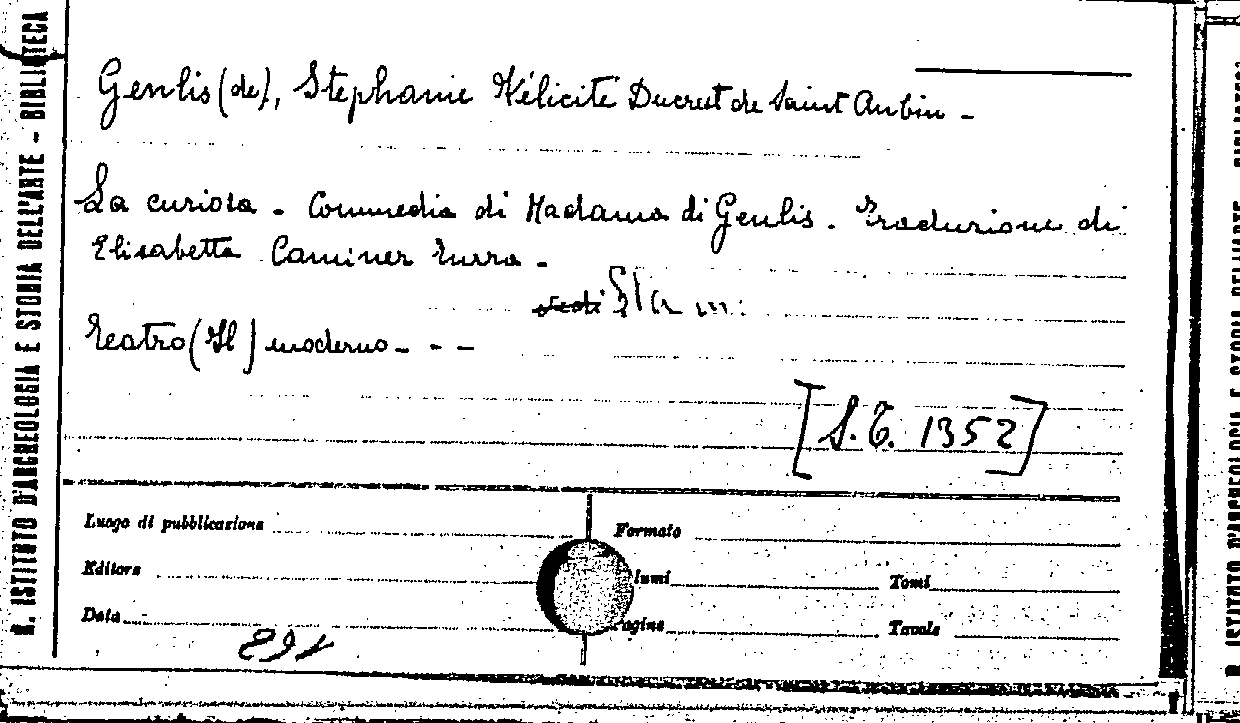 R. ISTITUTO D'ARCHEOLOGIA E STORIA DELL'ARTE - BIBLIOTECA
Genlis (de), Stephanie Félicité Ducrest de Saint Aubin -
La curiosa - Commedia di Madama di Genlis. Traduzione di
Elisabetta Caminer Turra -
vedi Stam:
Teatro (Il) moderno - - -
[S.T. 1352]
Luogo di pubblicazione
Formato
Editore
lumi
Tomi
Data
agine
Tavole
168